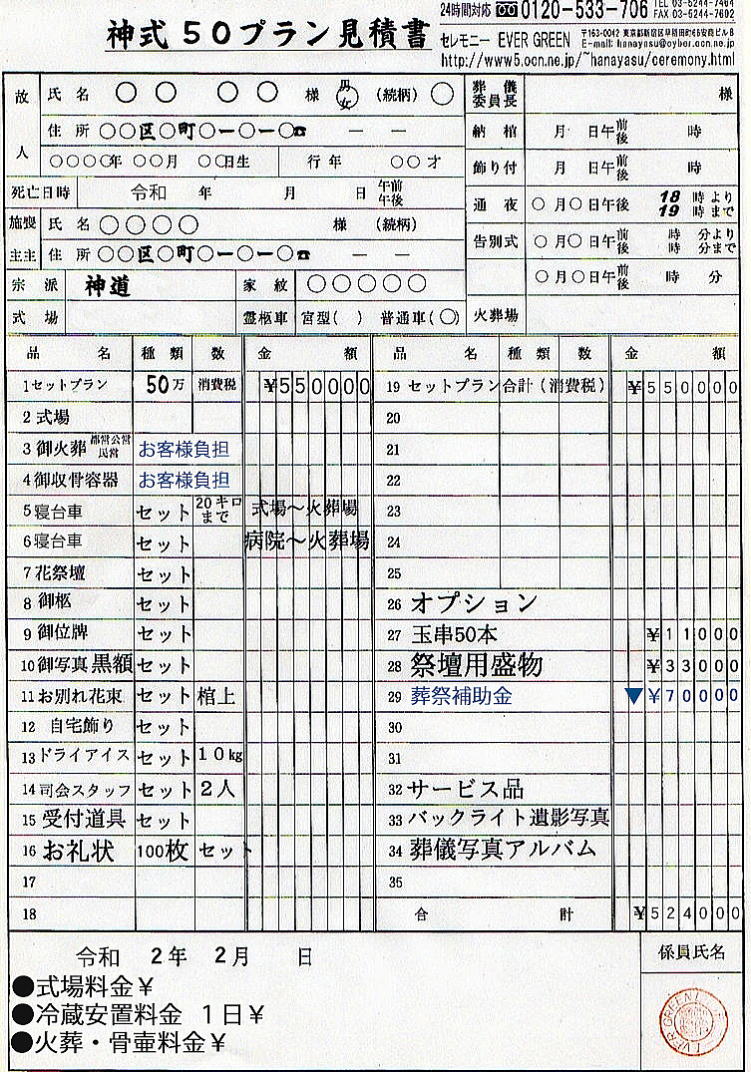 神式50プラン見積書
24時間対応 0120-533-706 TEL 03-5244-7464
FAX 03-5244-7602
セレモニー EVER GREEN 〒163-0042 東京都新宿区早稲田町46安商ビル8
E-mail: hanayasu@cyber.ocn.ne.jp
http://www5.ocn.ne.jp/~hanayasu/ceremony.html
故人 氏名 ○ ○ ○ ○ 様 男女 (続柄) ○
住所 ○○区○町○ー○ー○☎ ー ー
○○○○年 ○○月 ○○日生 行年 ○○才
死亡日時 令和 年 月 日 午前午後
施主 喪主 氏名 ○○○○ 様 (続柄)
住所 ○○区○町○ー○ー○☎ ー ー
宗派 神道 家紋 ○○○○○
式場 霊柩車 宮型( ) 普通車(○)
葬儀委員長 様
納棺 月 日午前後 時
飾り付 月 日午前後 時
通夜 ○月○日午後 18時より 19時まで
告別式 ○月○日午前後 時 分より 時 分まで
○月○日午前後 時 分
火葬場
品名 種類 数 金額 品名 種類 数 金額
1セットプラン 50万 消費税 ¥550000
2式場
3御火葬 都営公営民営 お客様負担
4御収骨容器 お客様負担
5寝台車 セット 20キロまで 式場〜火葬場
6寝台車 セット 病院〜火葬場
7花祭壇 セット
8御柩 セット
9御位牌 セット
10御写真 黒額 セット
11お別れ花束 セット 棺上
12 自宅飾り セット
13ドライアイス セット 10kg
14司会スタッフ セット 2人
15 受付道具 セット
16 お礼状 100枚 セット
17
18
19 セットプラン合計(消費税) ¥550000
20
21
22
23
24
25
26 オプション
27 玉串50本 ¥11000
28 祭壇用盛物 ¥33000
29 葬祭補助金 ▼¥70000
30
31
32 サービス品
33 バックライト遺影写真
34 葬儀写真アルバム
35
合計 ¥524000
令和 2年 2月 日
係員氏名
●式場料金¥
●冷蔵安置料金 1日¥
●火葬・骨壷料金¥
EVER GREEN